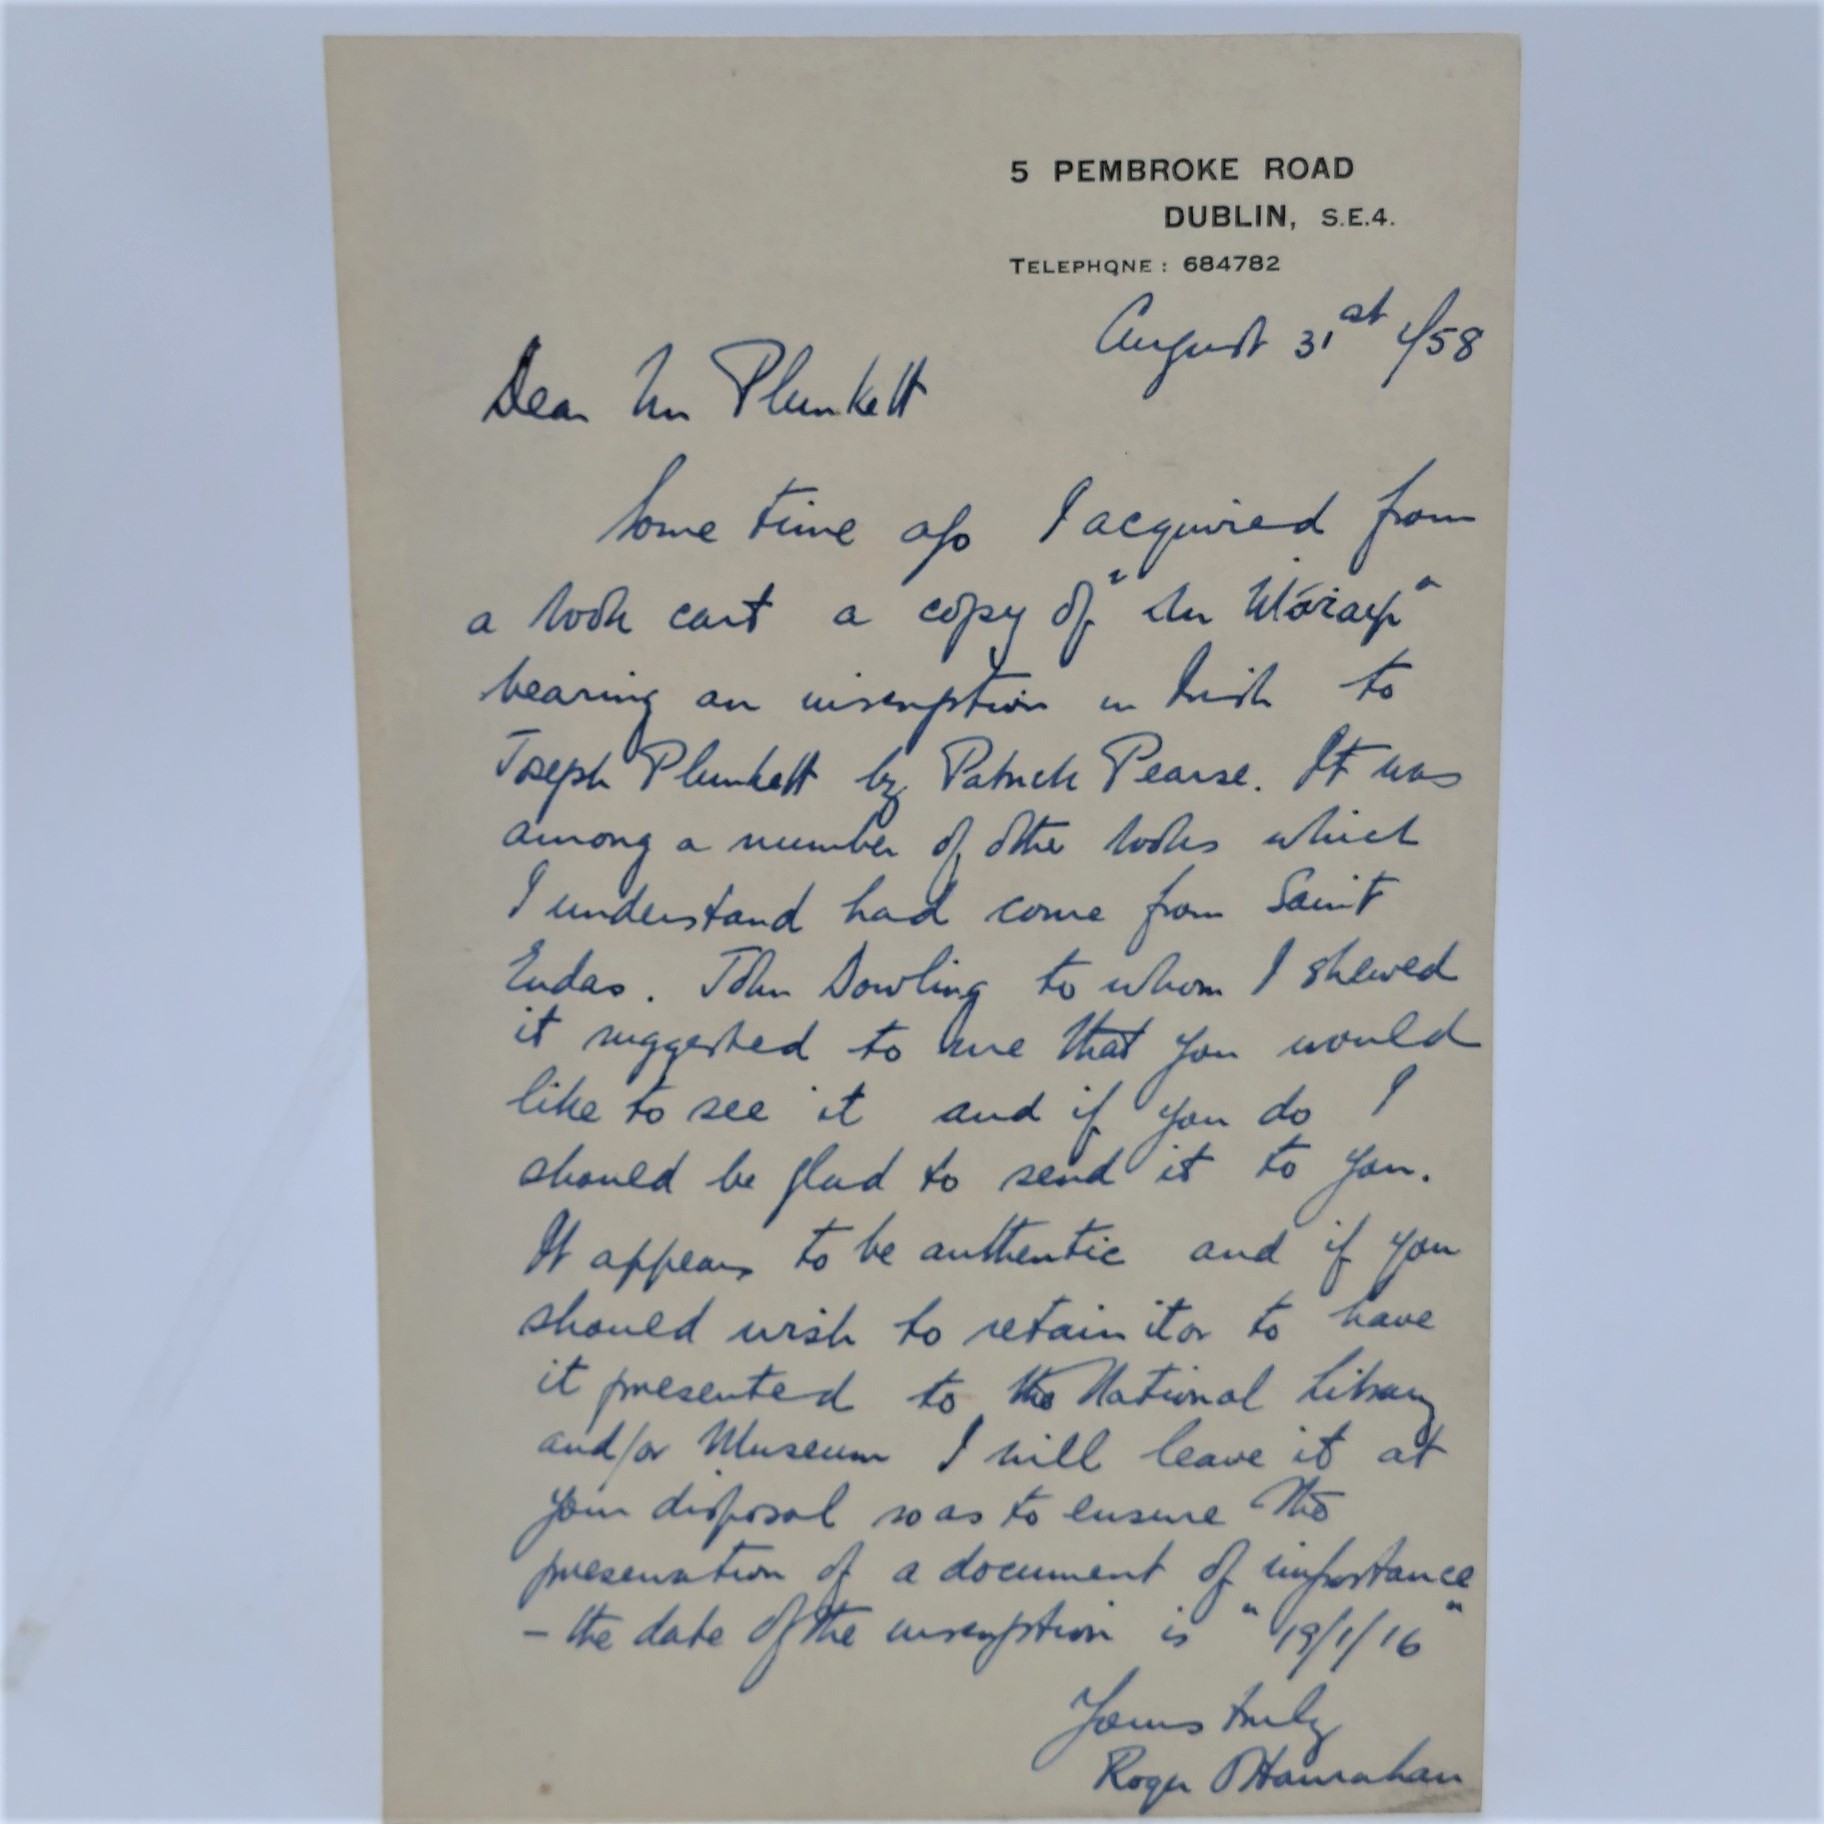 5 PEMBROKE ROAD
DUBLIN, S.E.4.
TELEPHONE: 684782
August 31st /58
Dear Mr Plunkett
Some time ago I acquired from
a book cart a copy of "An
bearing an inscription in Irish to
Joseph Plunkett by Patrick Pearse. It was
among a number of other books which
I understand had come from Saint
Endas. John Dowling to whom I shewed
it suggested to me that you would
like to see it and if you do I
should be glad to send it to you.
It appears to be authentic and if you
should wish to retain it or to have
it presented to the National Library
and/or Museum I will leave it at
your disposal so as to ensure the
preservation of a document of importance
- the date of the inscription is "19/1/16"
Yours truly
Roger O'Hanrahan